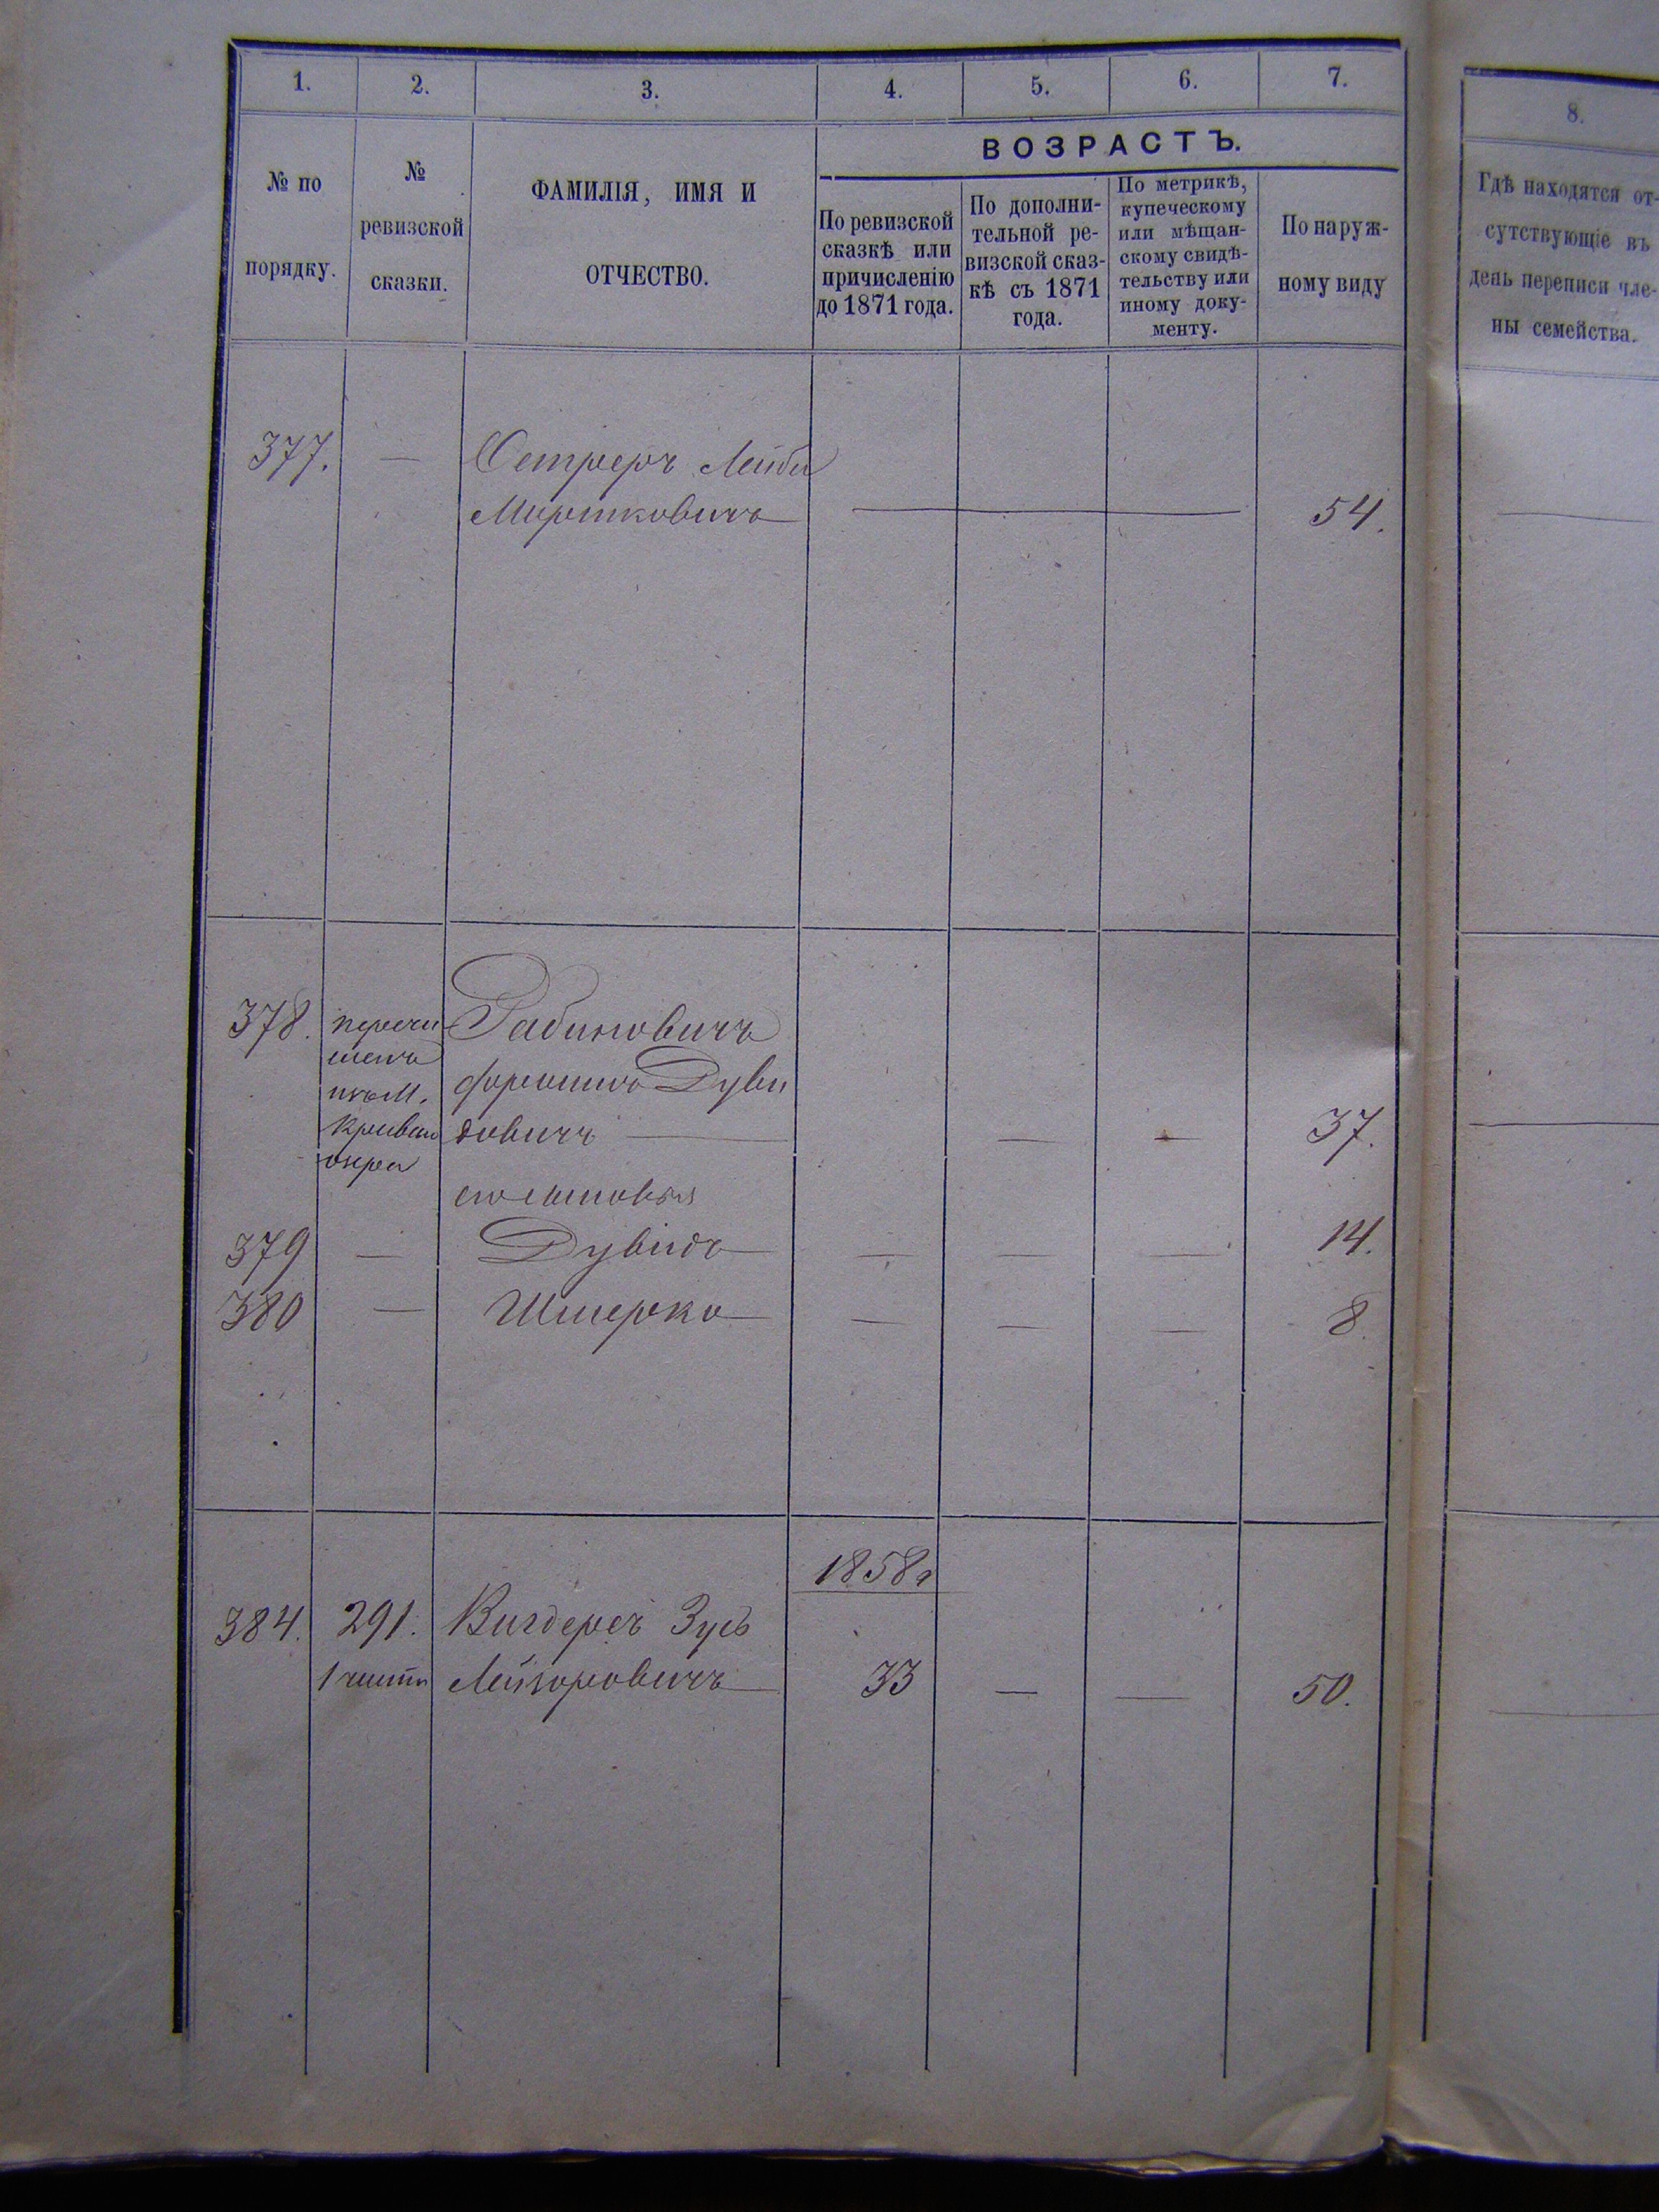 1. 2. 3. 4. 5. 6. 7.
8.
ВОЗРАСТЪ.
№ по
порядку.
№
ревизской
сказки.
ФАМИЛІЯ, ИМЯ И
ОТЧЕСТВО.
По ревизской
сказкѣ или
причисленію
до 1871 года.
По дополни-
тельной ре-
визской сказ-
кѣ съ 1871
года.
По метрикѣ,
купеческому
или мѣщан-
скому свидѣ-
тельству или
иному доку-
менту.
По наруж-
ному виду
Гдѣ находятся от-
сутствующіе въ
день переписи чле-
ны семейства.
377. — Лейба
Мошковичъ — 54.
378. Рабиновичъ
Дуви
довичъ — — — 37.
его сыновья
379 — Дувидъ — — — 14.
380 — Шмерко — — — 8.
1858 г
384. 291. Вигдерсъ Зусь
Лейзоровичъ — 33 — — 50.